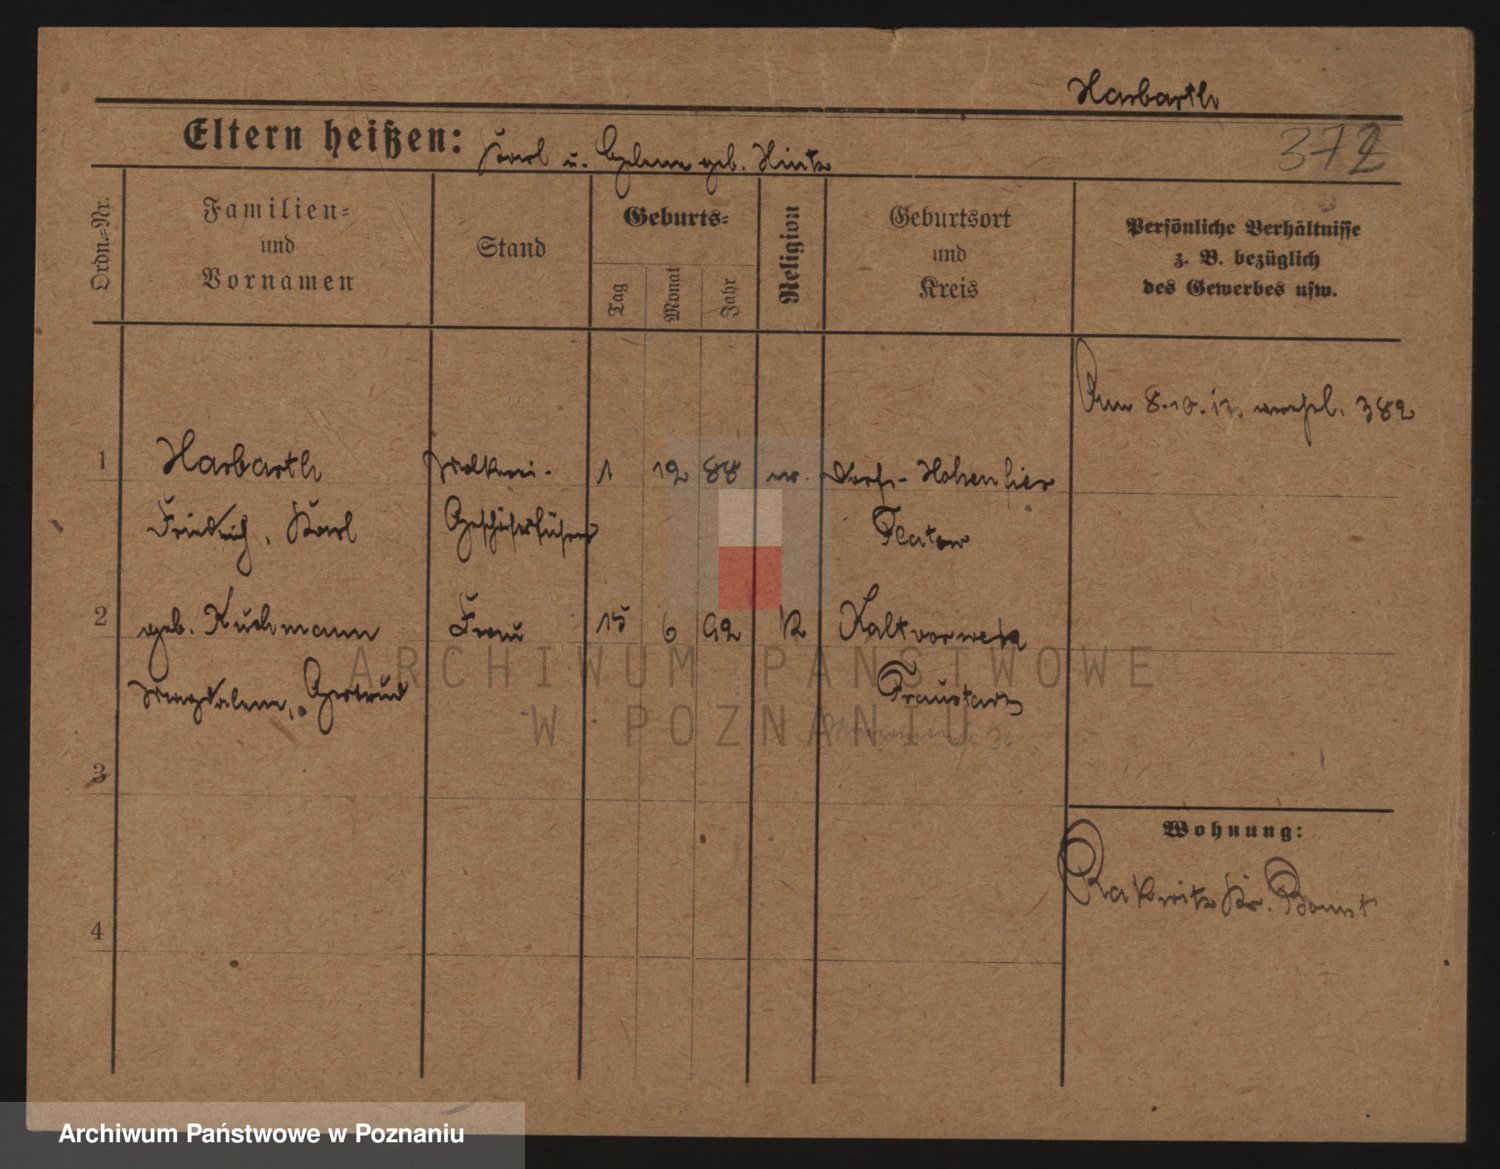 Harbarth
372
Eltern heißen: Karl u. Helene geb. Hintz
Ordn.=Nr.
Familien=
und
Vornamen
Stand
Geburts=
Tag
Monat
Jahr
Religion
Geburtsort
und
Kreis
Persönliche Verhältnisse
z. B. bezüglich
des Gewerbes usw.
Am 8.10.17. 382
1 Harbarth Molkerei- 1 12 88 Dorf-Hohenfier
Friedrich, Karl Geschäftsführer Flatow
2 geb. Kuchmann Frau 15 6 92 K Kaltvorwerk
Magdalena, Gertrud Fraustadt
3
Wohnung:
Rakwitz Kr. Bomst
4
ARCHIWUM PAŃSTWOWE
W POZNANIU
Archiwum Państwowe w Poznaniu